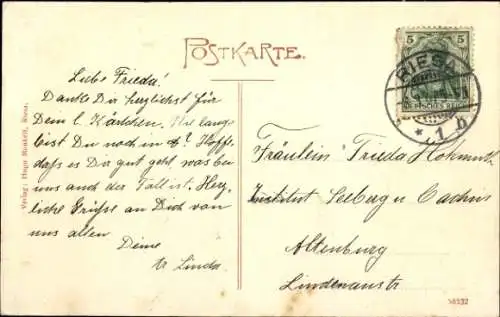 POSTKARTE.
Liebe Frieda!
Danke Dir herzlichst für
Dein l. Kärtchen. Wie lange
bist Du noch in ? Hoffe
daß es Dir gut geht, was bei
uns auch der Fall ist. Herz-
liche Grüße an Dich von
uns allen
Deine
tr. Linda.
5 5
DEUTSCHES REICH
RIESA
* 1 b
Fräulein Frieda Hokmuth
Institut Seeberg u
Altenburg
Lindenaustr
Verlag: Hugo Munkelt, Riesa.